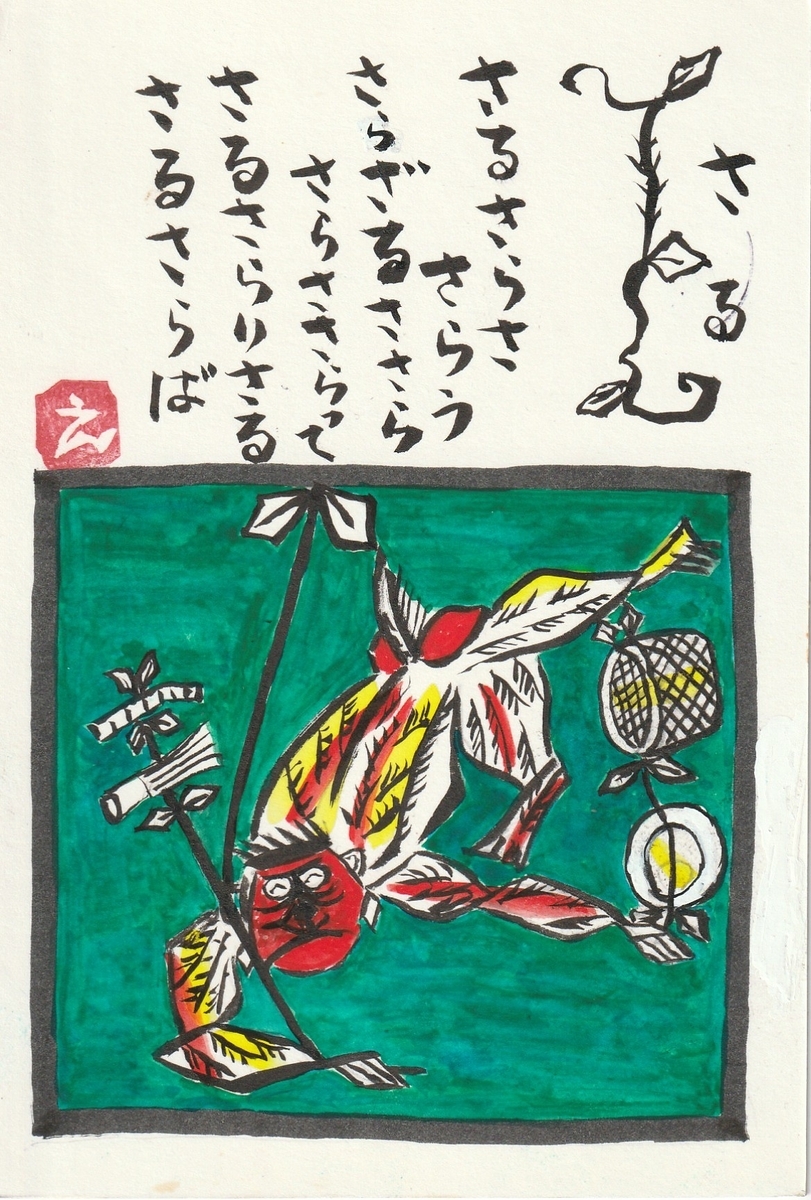 さる
さるさらさ
さらう
さらざるささら
さらささらって
さるさらりさる
さるさらば